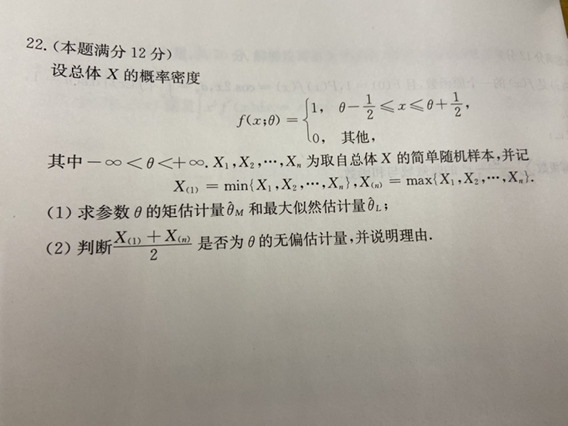 22.(本题满分 12 分)
设总体 X 的概率密度
f(x;θ) = {1, θ − 1/2 ≤ x ≤ θ + 1/2,
0, 其他,
其中 −∞ < θ < +∞. X₁,X₂,⋯,Xₙ 为取自总体 X 的简单随机样本,并记
X₍₁₎ = min{X₁,X₂,⋯,Xₙ},X₍ₙ₎ = max{X₁,X₂,⋯,Xₙ}.
(1) 求参数 θ 的矩估计量 θ̂_M 和最大似然估计量 θ̂_L;
(2) 判断 (X₍₁₎ + X₍ₙ₎)/2 是否为 θ 的无偏估计量,并说明理由.